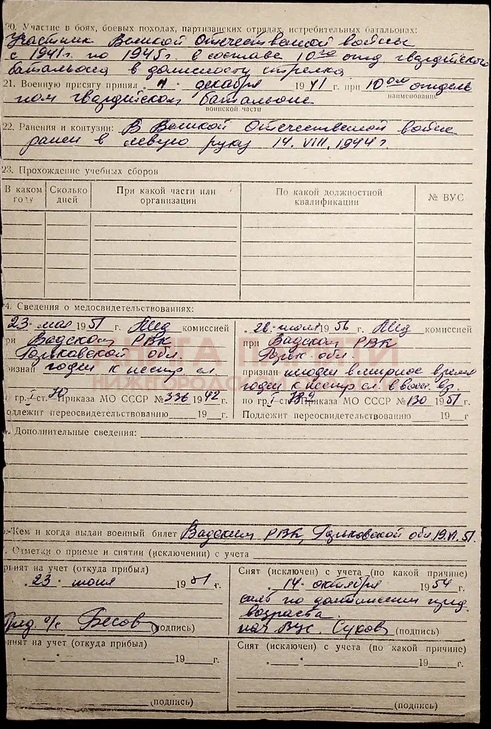 20. Участие в боях, боевых походах, партизанских отрядах, истребительных батальонах:
Участник Великой Отечественной войны
с 1941 г. по 1945 г. в составе 10го отд гвардейского
батальона в должности стрелка
21. Военную присягу принял "4" декабря 1941 г. при 10ом отдель
наименование
ном гвардейском батальоне
воинской части
22. Ранения и контузии: В Великой Отечественной войне
ранен в левую руку 14. VIII. 1944 г.
23. Прохождение учебных сборов
В каком году
Сколько дней
При какой части или организации
По какой должностной квалификации
№ ВУС
4. Сведения о медосвидетельствованиях:
23. мая 1951 г. Мед комиссией
при Вадском РВК
Горьковской обл.
признан годен к нестр сл
по гр. I ст. Приказа МО СССР № 336 1942 г.
Подлежит переосвидетельствованию 19 г.
1956 г. Мед комиссией
при Вадском РВК
Горьк обл.
признан в мирное время
годен к нестр сл. в воен. вр.
по гр. I ст. Приказа МО СССР № 130 1951 г.
Подлежит переосвидетельствованию 19 г.
ПАМЯТИ
НИЖЕГОРОДСКОЙ
Дополнительные сведения:
Кем и когда выдан военный билет Вадским РВК, Горьковской обл 19.VI.51
Отметки о приеме и снятии (исключении) с учета
принят на учет (откуда прибыл)
23. июня 1951 г.
Бесов (подпись)
Снят (исключен) с учета (по какой причине)
14 октября 1954 г.
снят по достижении пред.
возраста
нач Вус. Суров (подпись)
принят на учет (откуда прибыл)
19 г.
(подпись)
Снят (исключен) с учета (по какой причине)
19 г.
(подпись)